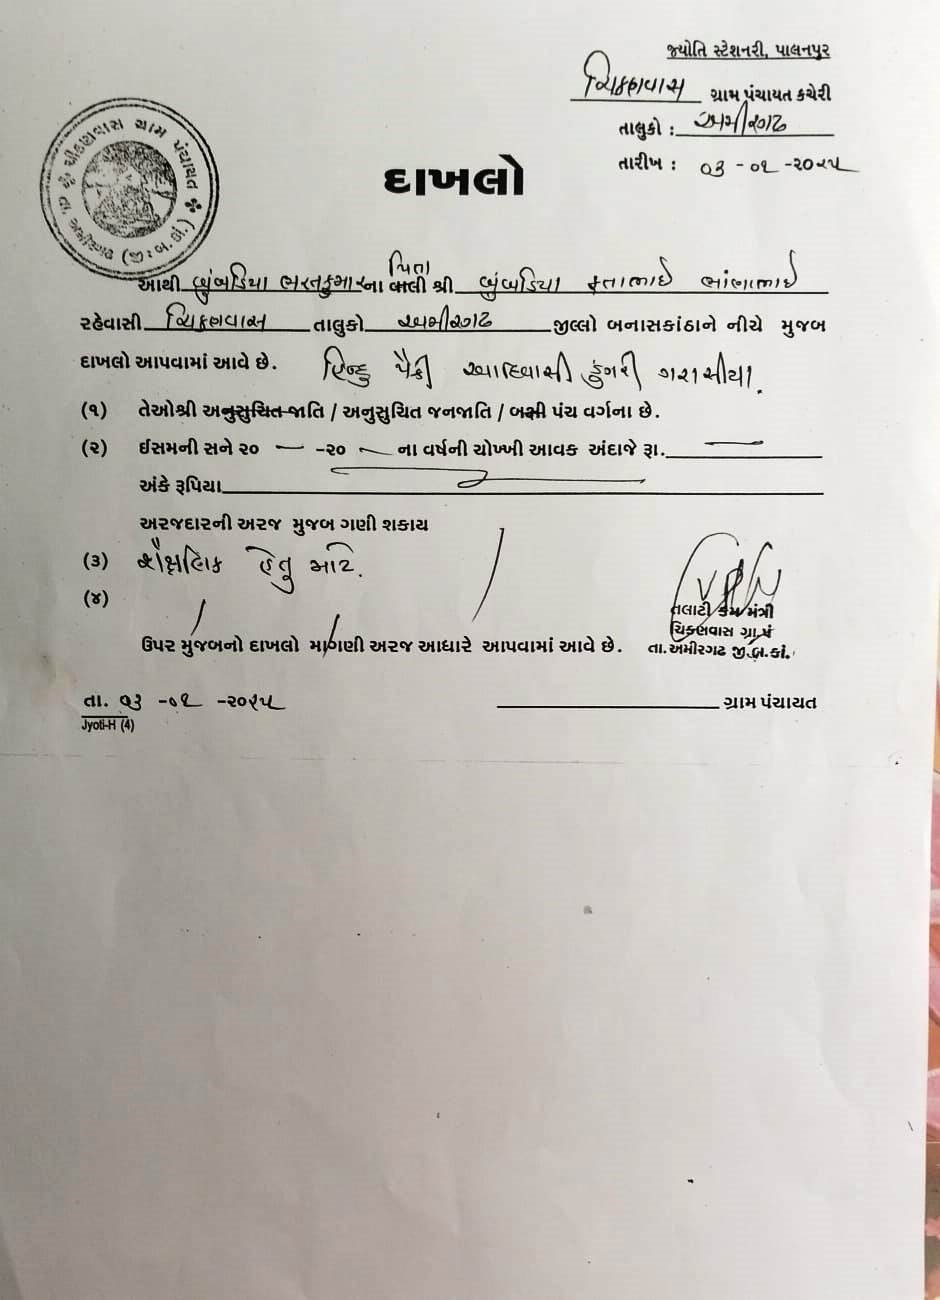 જ્યોતિ સ્ટેશનરી, પાલનપુર
ચિકણવાસ ગ્રામ પંચાયત કચેરી
તાલુકો : અમીરગઢ
તારીખ : ૦૩ - ૦૧ - ૨૦૨૫
ચીકણવાસ ગ્રામ પંચાયત
(જી.બ.કાં.)
દાખલો
પિતા
આથી બુંબડિયા ભરતકુમારના વાલી શ્રી બુંબડિયા ફતાભાઈ ભાંણાભાઈ
રહેવાસી ચિકણવાસ તાલુકો અમીરગઢ જીલ્લો બનાસકાંઠાને નીચે મુજબ
દાખલો આપવામાં આવે છે. હિન્દુ પૈકી આદિવાસી ડુંગરી ગરાસીયા.
(૧) તેઓશ્રી અનુસુચિત જાતિ / અનુસુચિત જનજાતિ / બક્ષી પંચ વર્ગના છે.
(૨) ઈસમની સને ૨૦ — -૨૦ — ના વર્ષની ચોખ્ખી આવક અંદાજે રૂા. —
અંકે રૂપિયા
અરજદારની અરજ મુજબ ગણી શકાય
(૩) શૈક્ષણિક હેતુ માટે.
(૪)
તલાટી કમ મંત્રી
ચિકણવાસ ગ્રા.પં
તા.અમીરગઢ જી.બ.કાં.
ઉપર મુજબનો દાખલો માગણી અરજ આધારે આપવામાં આવે છે.
તા. ૦૩ -૦૧ -૨૦૨૫ ગ્રામ પંચાયત
Jyoti-H (4)